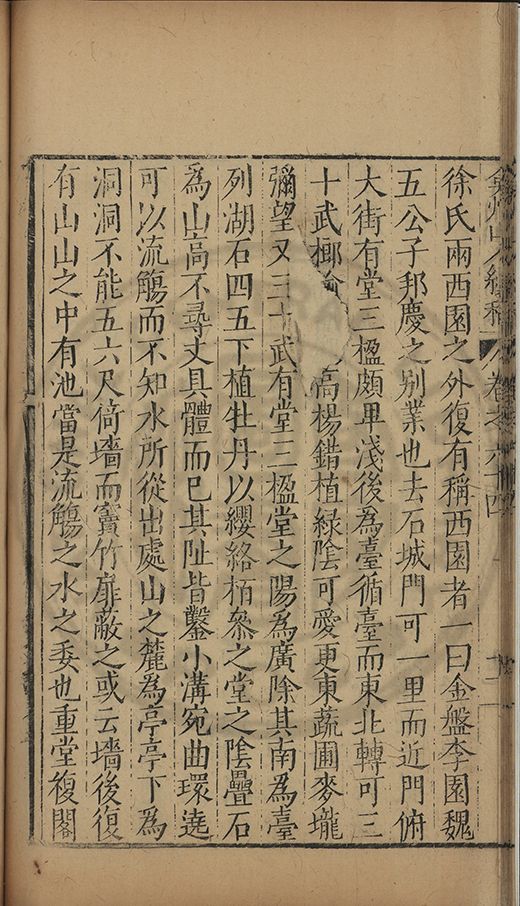 弇州山人續稿 卷之六十四
徐氏兩西園之外復有稱西園者一曰金盤李園魏
五公子邦慶之別業也去石城門可一里而近門俯
大街有堂三楹頗卑淺後為臺循臺而東北轉可三
十武榔榆 高楊錯植緑陰可愛更東蔬圃麥壠
彌望又三十武有堂三楹堂之陽為廣除其南為臺
列湖石四五下植牡丹以纓絡栢叅之堂之陰疊石
為山高不尋丈具體而已其趾皆鑿小溝宛曲環遶
可以流觴而不知水所從出處山之麓為亭亭下為
洞洞不能五六尺倚墻而竇竹扉蔽之或云墻後復
有山山之中有池當是流觴之水之委也重堂複閣